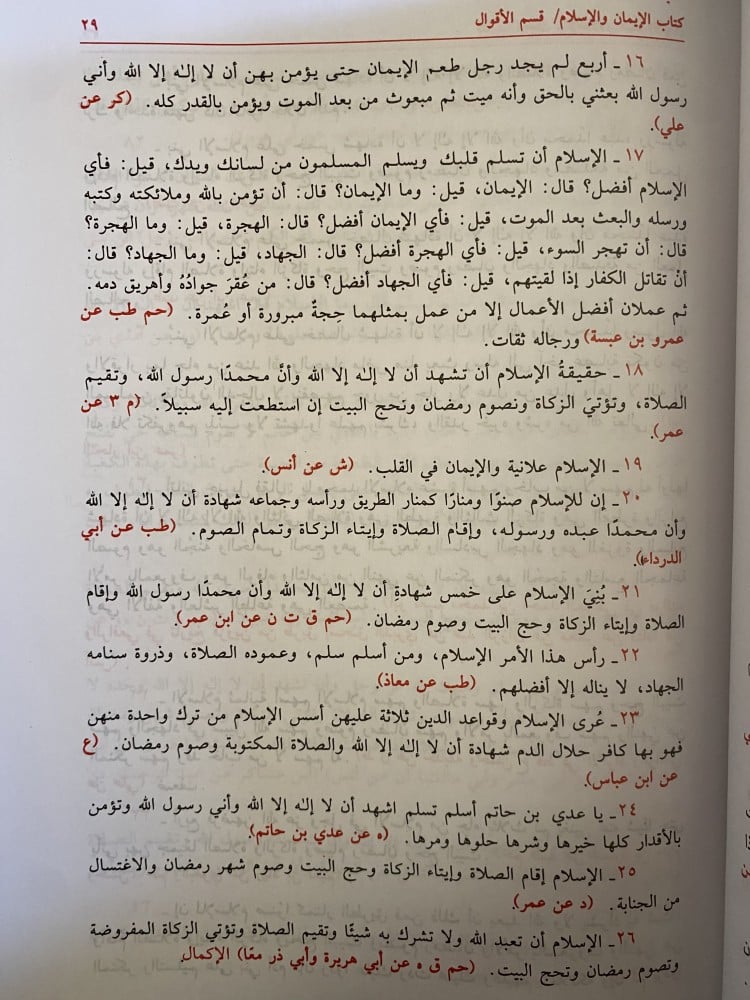 كتاب الإيمان والإسلام/ قسم الأقوال ٢٩
١٦ ـ أربع لم يجد رجل طعم الإيمان حتى يؤمن بهن أن لا إله إلا الله وأني
رسول الله بعثني بالحق وأنه ميت ثم مبعوث من بعد الموت ويؤمن بالقدر كله. (كر عن
علي).
١٧ ـ الإسلام أن تسلم قلبك ويسلم المسلمون من لسانك ويدك، قيل: فأي
الإسلام أفضل؟ قال: الإيمان، قيل: وما الإيمان؟ قال: أن تؤمن بالله وملائكته وكتبه
ورسله والبعث بعد الموت، قيل: فأي الإيمان أفضل؟ قال: الهجرة، قيل: وما الهجرة؟
قال: أن تهجر السوء، قيل: فأي الهجرة أفضل؟ قال: الجهاد، قيل: وما الجهاد؟ قال:
أنْ تقاتل الكفار إذا لقيتهم، قيل: فأي الجهاد أفضل؟ قال: من عُقرَ جوادُهُ وأهريق دمه.
ثم عملان أفضل الأعمال إلا من عمل بمثلهما حِجةٌ مبرورة أو عُمرة. (حم طب عن
عمرو بن عبسة) ورجاله ثقات.
١٨ ـ حقيقةُ الإسلام أن تشهد أن لا إله إلا الله وأنَّ محمدًا رسول الله، وتقيم
الصلاة، وتؤتيَ الزكاة ونصوم رمضان ونحج البيت إن استطعت إليه سبيلاً. (م ٣ عن
عمر).
١٩ ـ الإسلام علانية والإيمان في القلب. (ش عن أنس).
٢٠ ـ إن للإسلام صنوًا ومنارًا كمنار الطريق ورأسه وجماعه شهادة أن لا إله إلا الله
وأن محمدًا عبده ورسوله، وإقام الصلاة وإيتاء الزكاة وتمام الصوم. (طب عن أبي
الدرداء).
٢١ ـ بُنِيَ الإسلام على خمس شهادةِ أن لا إله إلا الله وأن محمدًا رسول الله وإقام
الصلاة وإيتاء الزكاة وحج البيت وصوم رمضان. (حم ق ت ن عن ابن عمر).
٢٢ ـ رأس هذا الأمر الإسلام، ومن أسلم سلم، وعموده الصلاة، وذروة سنامه
الجهاد، لا يناله إلا أفضلهم. (طب عن معاذ).
٢٣ ـ عُرى الإسلام وقواعد الدين ثلاثة عليهن أسس الإسلام من ترك واحدة منهن
فهو بها كافر حلال الدم شهادة أن لا إله إلا الله والصلاة المكتوبة وصوم رمضان. (ع
عن ابن عباس).
٢٤ ـ يا عدي بن حاتم أسلم تسلم اشهد أن لا إله إلا الله وأني رسول الله وتؤمن
بالأقدار كلها خيرها وشرها حلوها ومرها. (ه عن عدي بن حاتم).
٢٥ ـ الإسلام إقام الصلاة وإيتاء الزكاة وحج البيت وصوم شهر رمضان والاغتسال
من الجنابة. (د عن عمر).
٢٦ ـ الإسلام أن تعبد الله ولا تشرك به شيئًا وتقيم الصلاة وتؤتي الزكاة المفروضة
وتصوم رمضان وتحج البيت. (حم ق ه عن أبي هريرة وأبي ذر معًا) الإكمال.